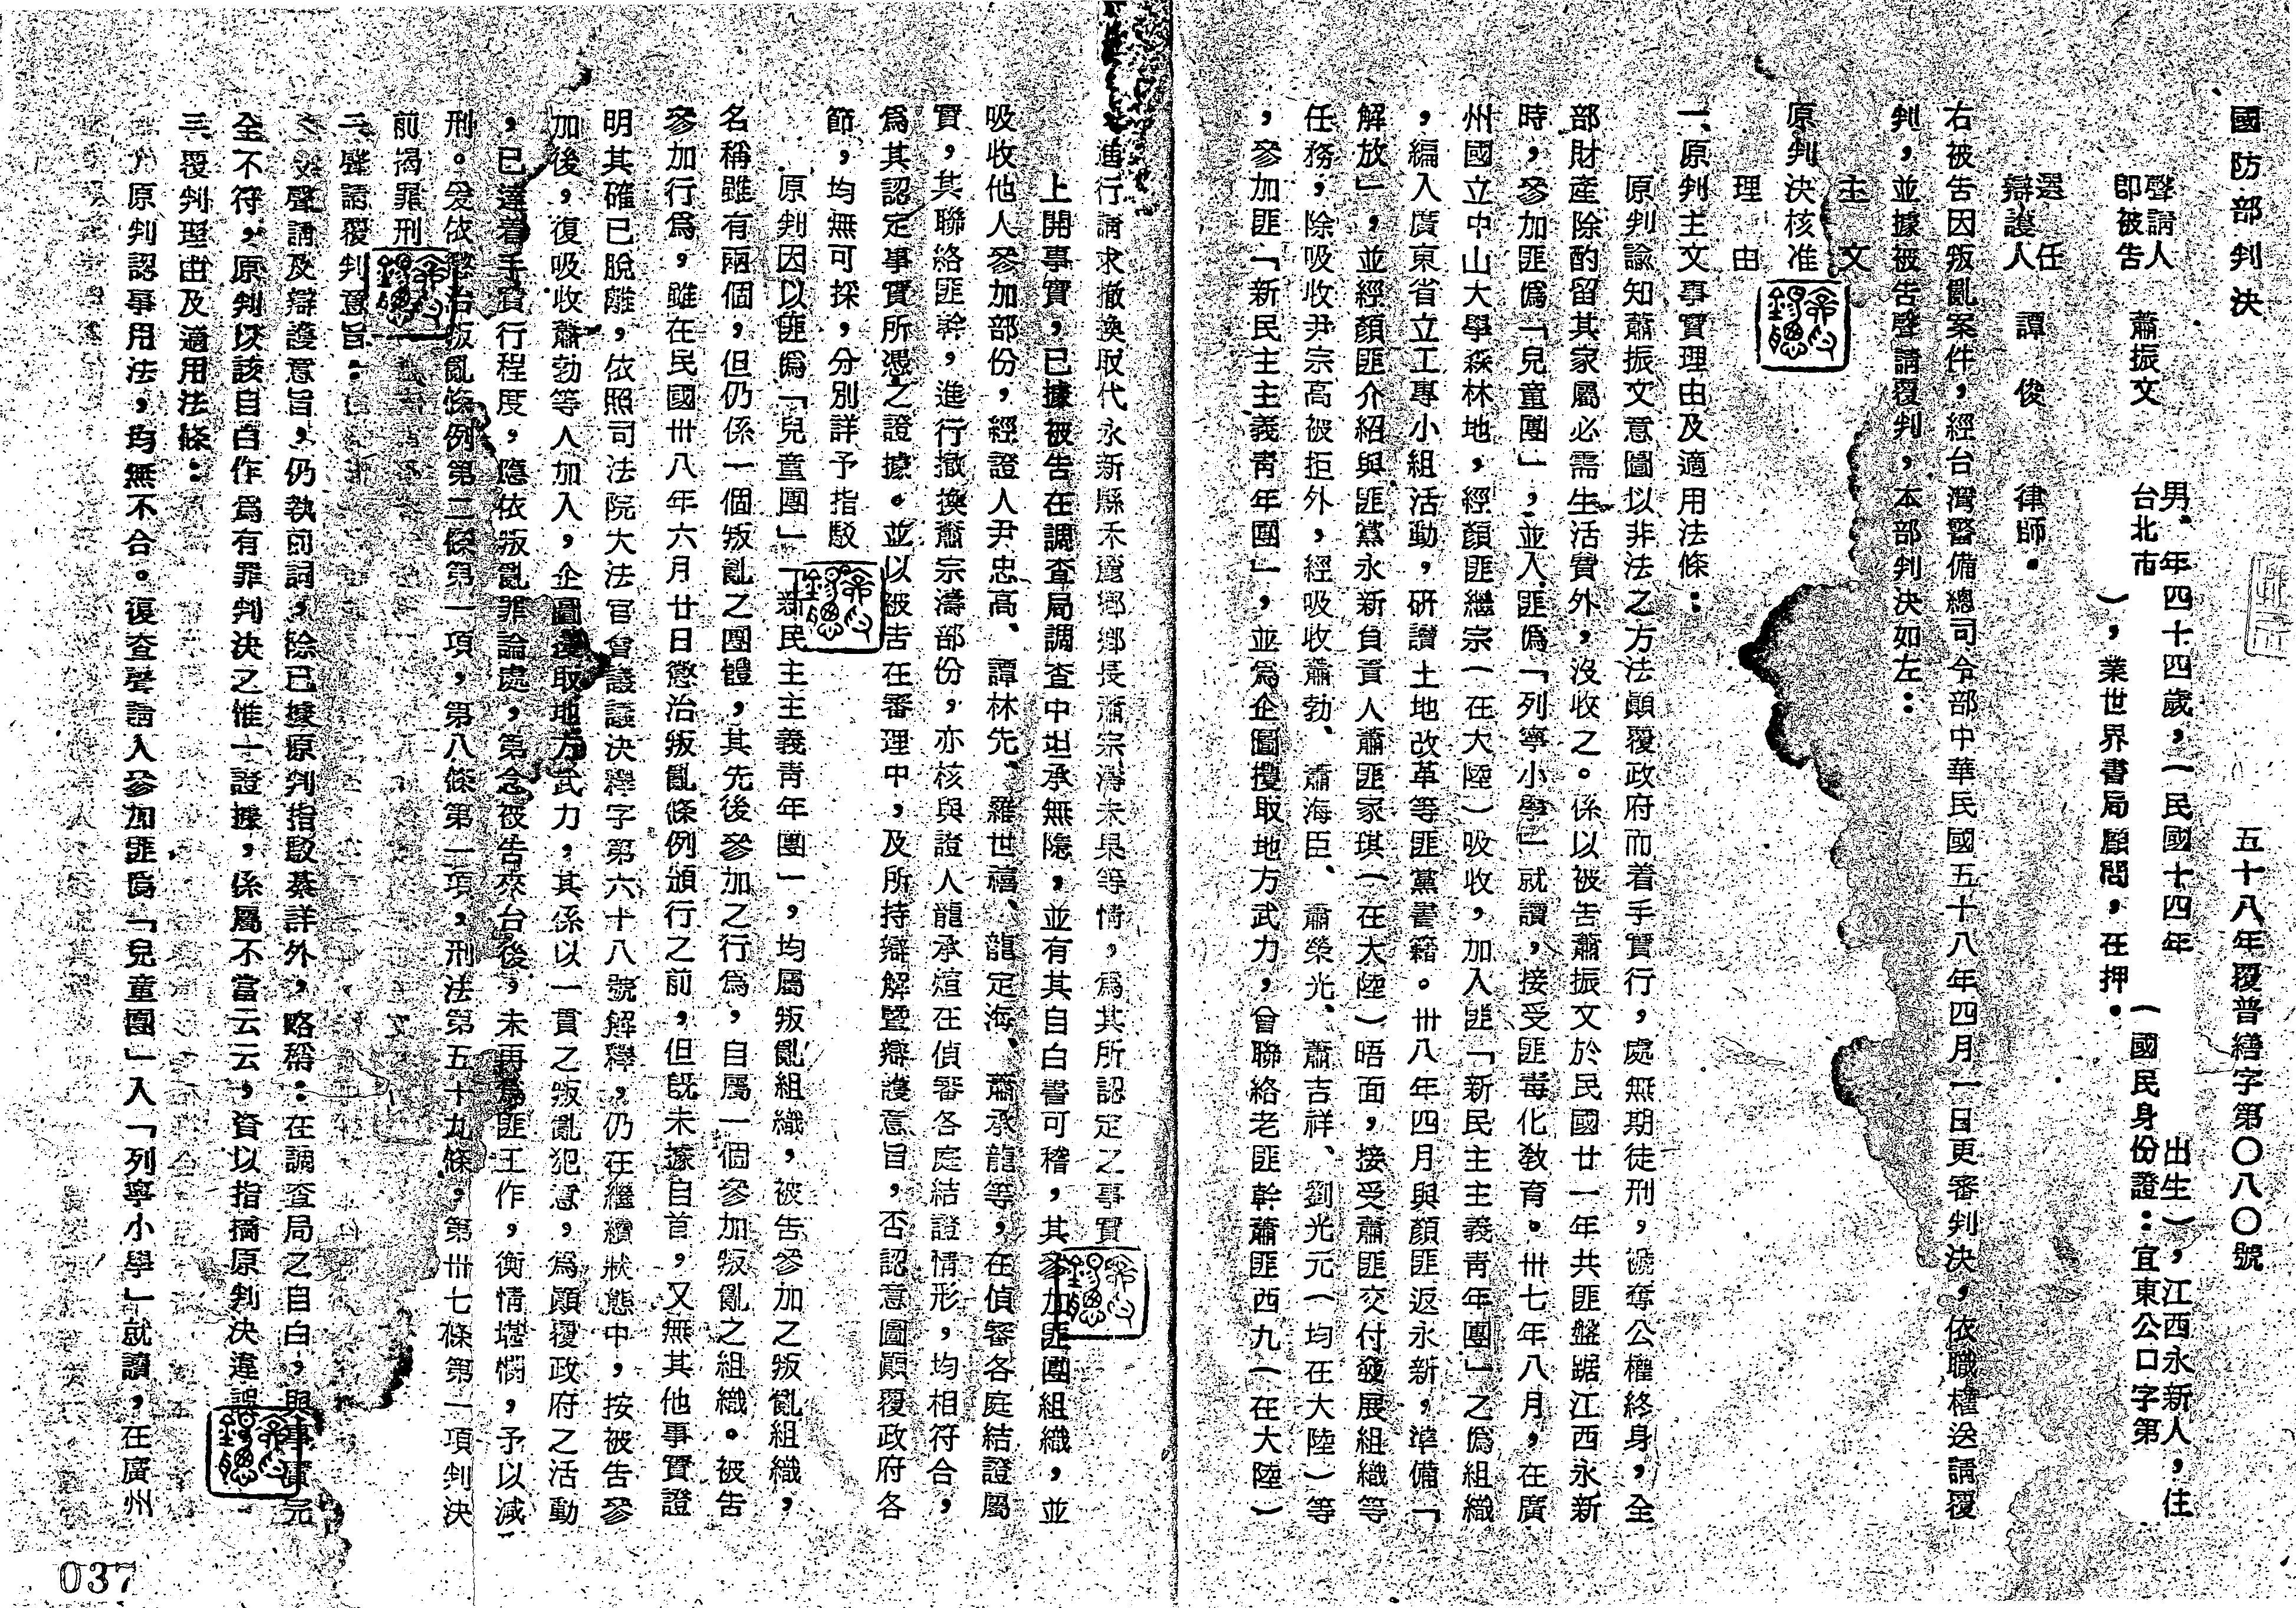 國防部判決
五十八年覆普繕字第〇八〇號
聲請人
即被告
蕭振文
男，年四十四歲，（民國十四年
出生），江西永新人，住
台北市
（國民身份證：宜東公口字第
），業世界書局顧問，在押。
選任
辯護人
譚俊
律師。
右被告因叛亂案件，經台灣警備總司令部中華民國五十八年四月一日更審判決，依職權送請覆
判，並據被告聲請覆判，本部判決如左：
主文
原判決核准
理由
一、原判主文事實理由及適用法條：
原判諭知蕭振文意圖以非法之方法顛覆政府而着手實行，處無期徒刑，褫奪公權終身，全
部財產除酌留其家屬必需生活費外，沒收之。係以被告蕭振文於民國廿一年共匪盤踞江西永新
時，參加匪偽「兒童團」，並入匪偽「列寧小學」就讀，接受匪毒化教育。卅七年八月，在廣
州國立中山大學森林地，經顏匪繼宗（在大陸）吸收，加入匪「新民主主義青年團」之偽組織
，編入廣東省立工專小組活動，研讀土地改革等匪黨書籍。卅八年四月與顏匪返永新，準備「
解放」，並經顏匪介紹與匪黨永新負責人蕭匪家琪（在大陸）晤面，接受蕭匪交付發展組織等
任務，除吸收尹宗高被拒外，經吸收蕭勃、蕭海臣、蕭榮光、蕭吉祥、劉光元（均在大陸）等
，參加匪「新民主主義青年團」，並為企圖攫取地方武力，曾聯絡老匪幹蕭匪西九（在大陸）
，進行請求撤換取代永新縣禾鄉鄉長蕭宗濤未果等情，為其所認定之事實
上開事實，已據被告在調查局調查中坦承無隱，並有其自白書可稽，其參加匪團組織，並
吸收他人參加部份，經證人尹忠高、譚林先、羅世禧、龍定海、蕭承龍等，在偵審各庭結證屬
實，其聯絡匪幹，進行撤換蕭宗濤部份，亦核與證人龍承煊在偵審各庭結證情形，均相符合，
為其認定事實所憑之證據。並以被告在審理中，及所持辯解暨辯護意旨，否認意圖顛覆政府各
節，均無可採，分別詳予指駁
原判因以匪偽「兒童團」「新民主主義青年團」，均屬叛亂組織，被告參加之叛亂組織，
名稱雖有兩個，但仍係一個叛亂之團體，其先後參加之行為，自屬一個參加叛亂之組織。被告
參加行為，雖在民國卅八年六月廿日懲治叛亂條例頒行之前，但既未據自首，又無其他事實證
明其確已脫離，依照司法院大法官會議議決釋字第六十八號解釋，仍在繼續狀態中，按被告參
加後，復吸收蕭勃等人加入，企圖攫取地方武力，其係以一貫之叛亂犯意，為顛覆政府之活動
，已達着手實行程度，應依叛亂罪論處，第念被告來台後，未再為匪工作，衡情堪憫，予以減
刑。爰依懲治叛亂條例第二條第一項，第八條第一項，刑法第五十九條，第卅七條第一項判決
前揭罪刑
二、聲請覆判意旨：
聲請及辯護意旨，仍執前詞，除已據原判指駁綦詳外，略稱：在調查局之自白，與事實完
全不符，原判以該自白作為有罪判決之惟一證據，係屬不當云云，資以指摘原判決違誤
三、覆判理由及適用法條：
原判認事用法，均無不合。復查聲請人參加匪偽「兒童團」入「列寧小學」就讀，在廣州
037